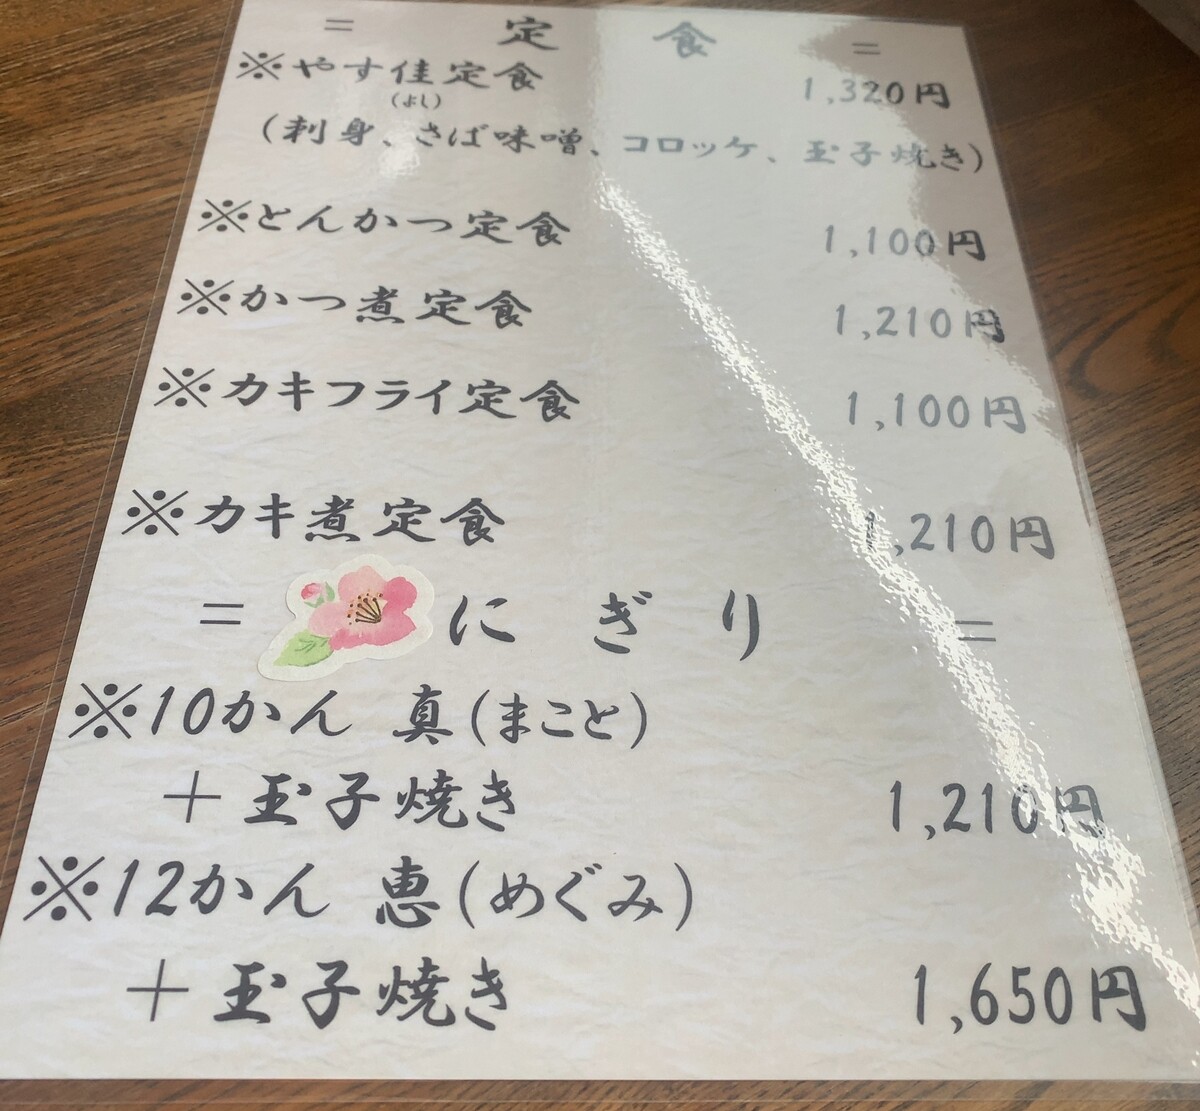 = 定食 =
※やす佳定食 1,320円
(よし)
(刺身、さば味噌、コロッケ、玉子焼き)
※とんかつ定食 1,100円
※かつ煮定食 1,210円
※カキフライ定食 1,100円
※カキ煮定食 1,210円
= にぎり =
※10かん 真(まこと)
+玉子焼き 1,210円
※12かん 恵(めぐみ)
+玉子焼き 1,650円